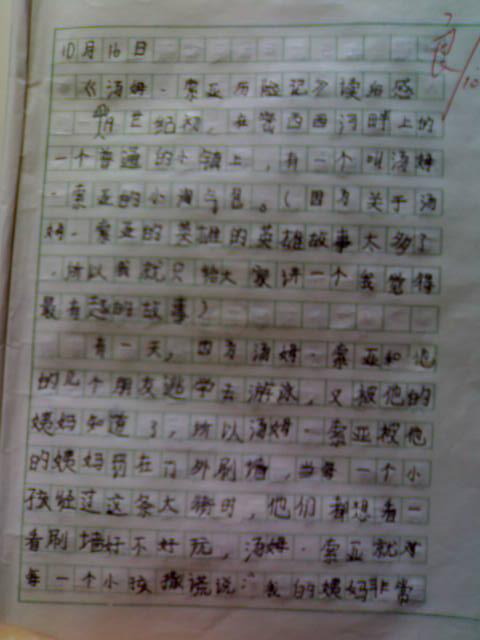 10月16日
良
10
《汤姆·索亚历险记》读后感
世纪初,在密西西河畔上的
一个普通的小镇上,有一个叫汤姆
·索亚的小淘气包。(因为关于汤
姆·索亚的英雄的英雄故事太多了
,所以我就只给大家讲一个我觉得
最有趣的故事)
有一天,因为汤姆·索亚和他
的几个朋友逃学去游泳,又被他的
姨妈知道了,所以汤姆·索亚被他
的姨妈罚在门外刷墙,当每一个小
孩经过这条大街时,他们都想看一
看刷墙好不好玩,汤姆·索亚就对
每一个小孩撒谎说:“我的姨妈非常